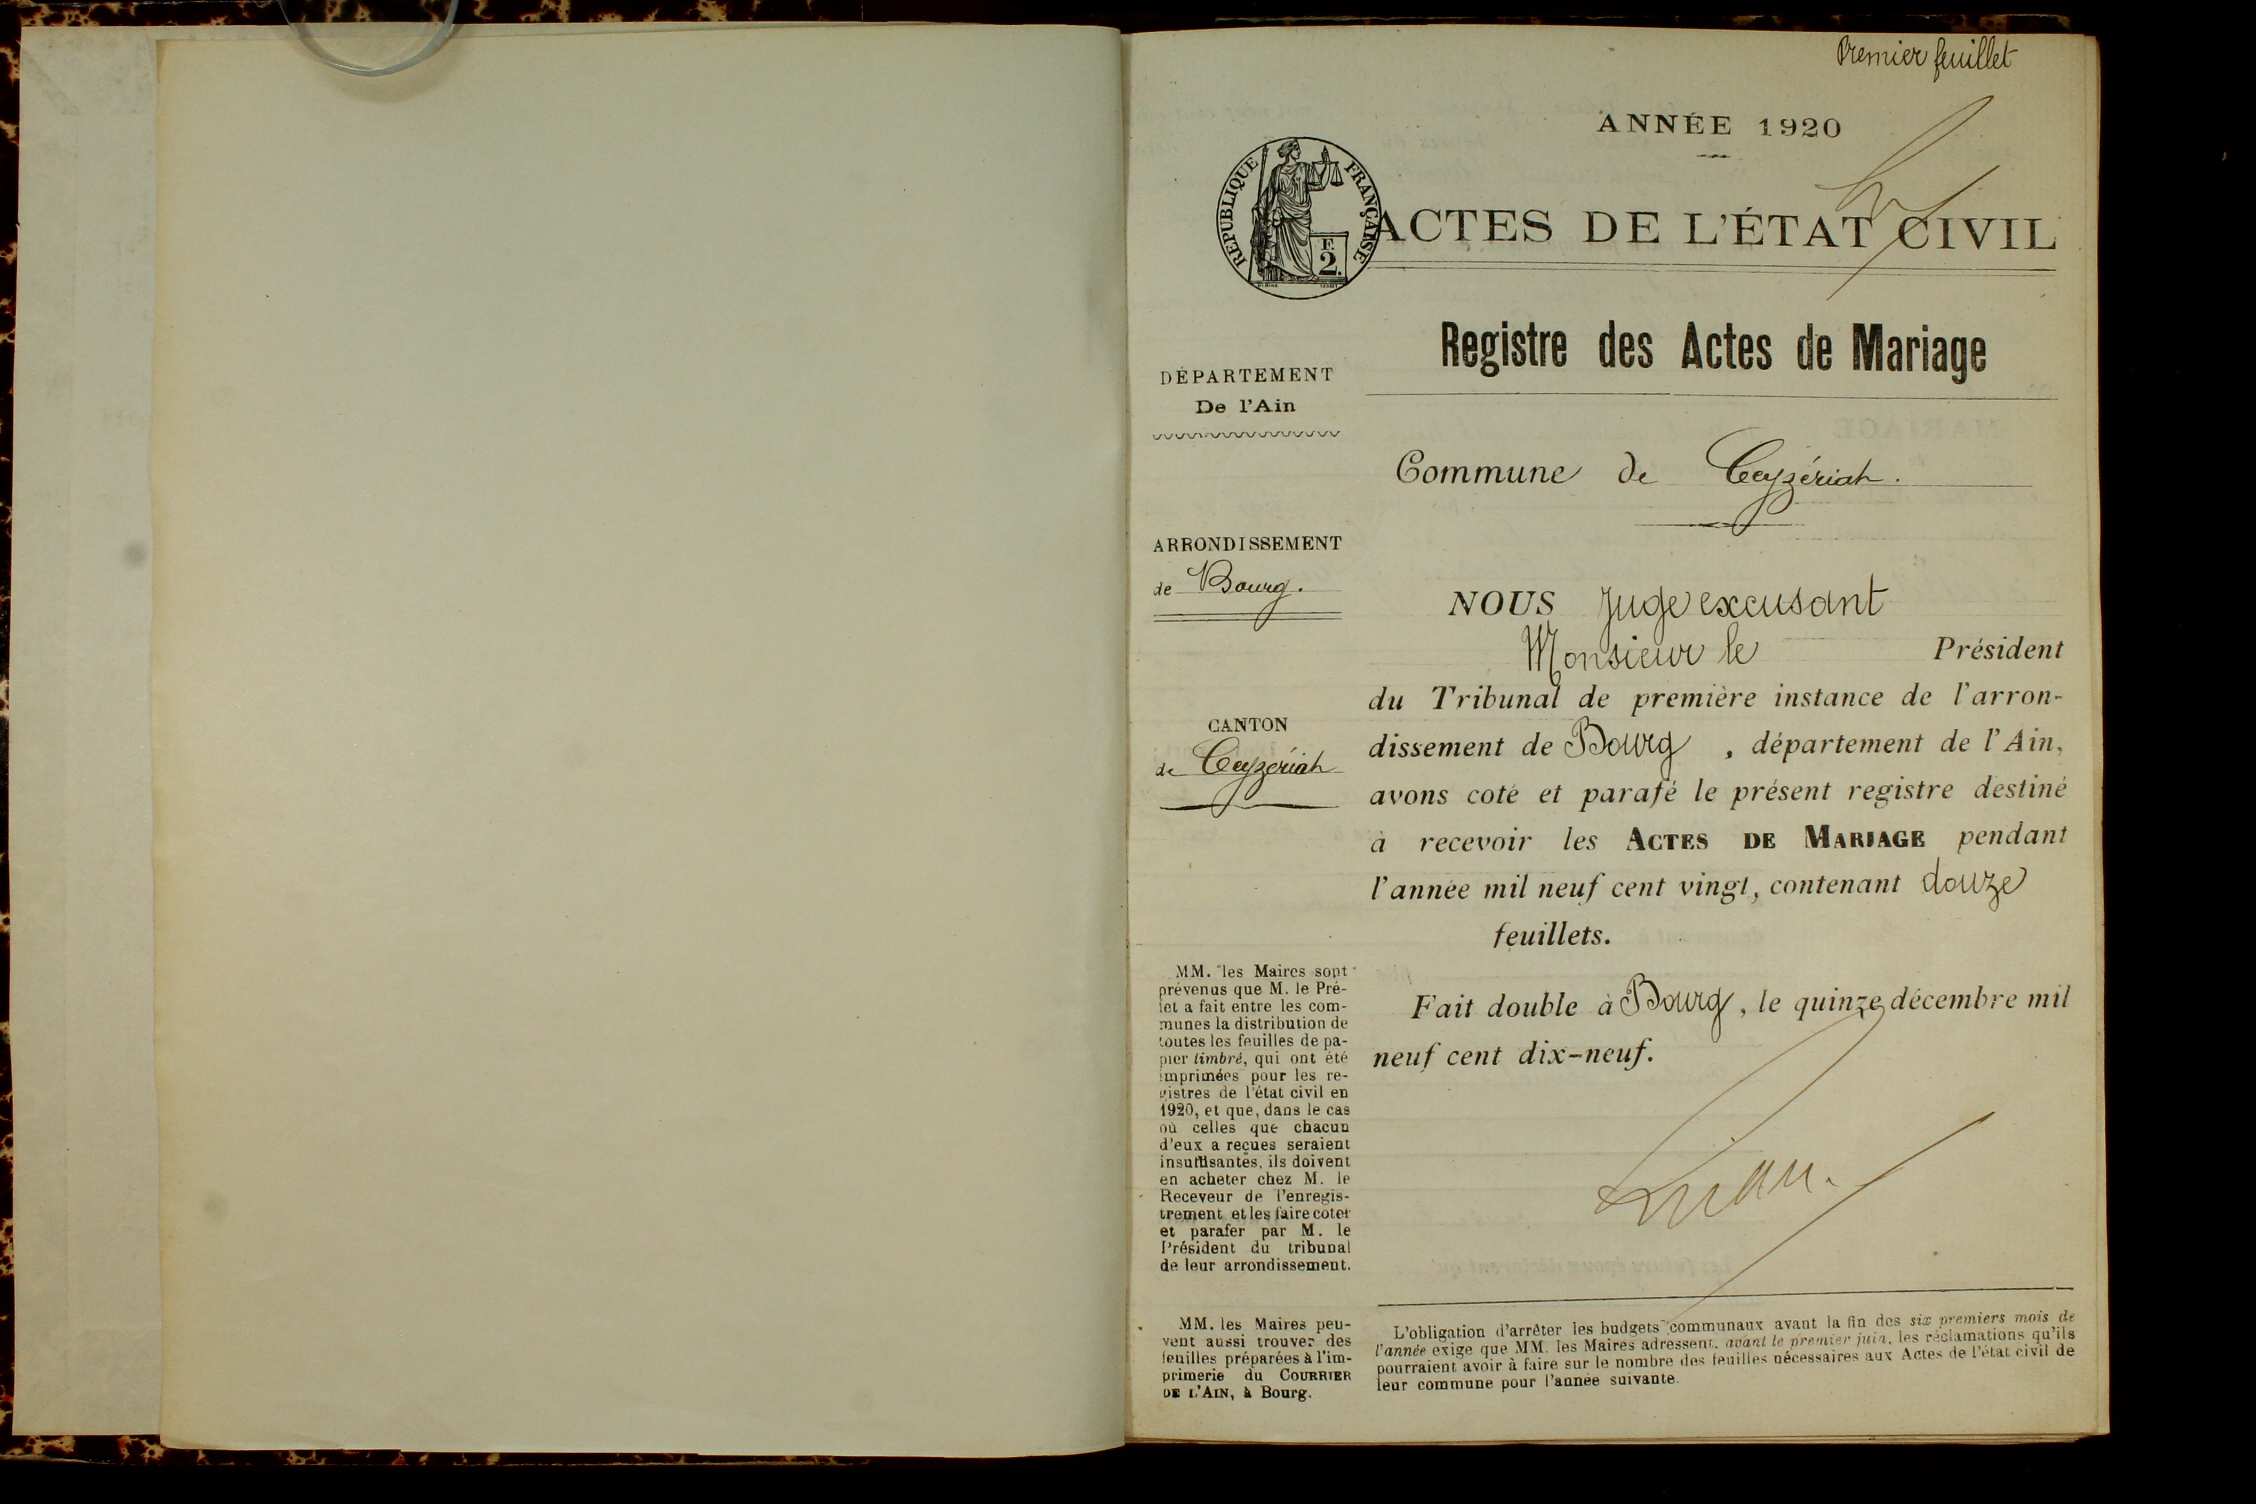 Premier feuillet
ANNÉE 1920
RÉPUBLIQUE FRANÇAISE
F.
2.
ACTES DE L'ÉTAT CIVIL
Registre des Actes de Mariage
DÉPARTEMENT
De l'Ain
Commune de Ceyzériat.
ARRONDISSEMENT
de Bourg.
CANTON
de Ceyzériat
NOUS Juge excusant
Monsieur le Président
du Tribunal de première instance de l'arron-
dissement de Bourg , département de l'Ain,
avons coté et parafé le présent registre destiné
à recevoir les ACTES DE MARIAGE pendant
l'année mil neuf cent vingt, contenant douze
feuillets.
Fait double à Bourg, le quinze décembre mil
neuf cent dix-neuf.
MM. les Maires sont
prévenus que M. le Pré-
fet a fait entre les com-
munes la distribution de
toutes les feuilles de pa-
pier timbré, qui ont été
imprimées pour les re-
gistres de l'état civil en
1920, et que, dans le cas
où celles que chacun
d'eux a reçues seraient
insuffisantes, ils doivent
en acheter chez M. le
Receveur de l'enregis-
trement et les faire coter
et parafer par M. le
Président du tribunal
de leur arrondissement.
MM. les Maires peu-
vent aussi trouver des
feuilles préparées à l'im-
primerie du COURRIER
DE L'AIN, à Bourg.
L'obligation d'arrêter les budgets communaux avant la fin des six premiers mois de
l'année exige que MM. les Maires adressent, avant le premier juin, les réclamations qu'ils
pourraient avoir à faire sur le nombre des feuilles nécessaires aux Actes de l'état civil de
leur commune pour l'année suivante.